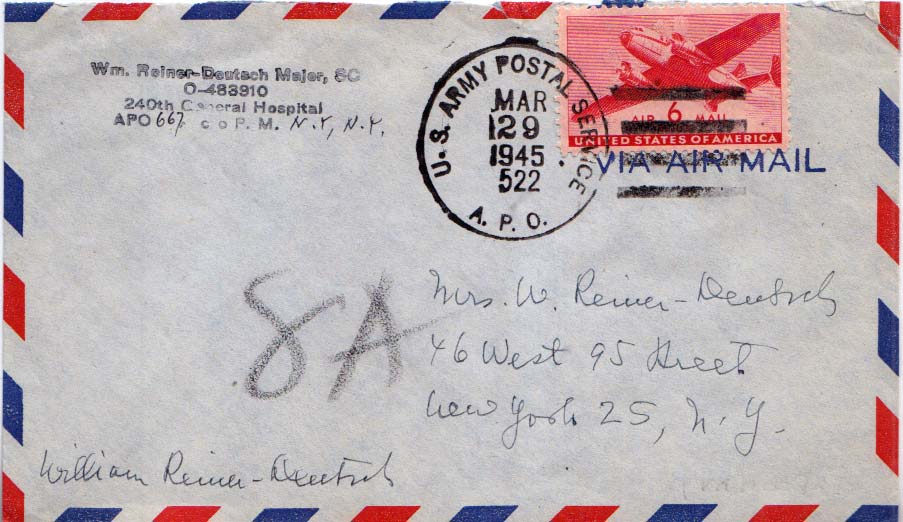 Wm. Reiner-Deutsch Major, SC
O-483910
240th General Hospital
APO 667 c o P. M. N.Y, N.Y.
U. S. ARMY POSTAL SERVICE
MAR
129
1945
522
A. P. O.
AIR 6 MAIL
UNITED STATES OF AMERICA
VIA AIR MAIL
8A
Mrs. W. Reiner-Deutsch
46 West 95 Street
New York 25, N.Y.
William Reiner-Deutsch